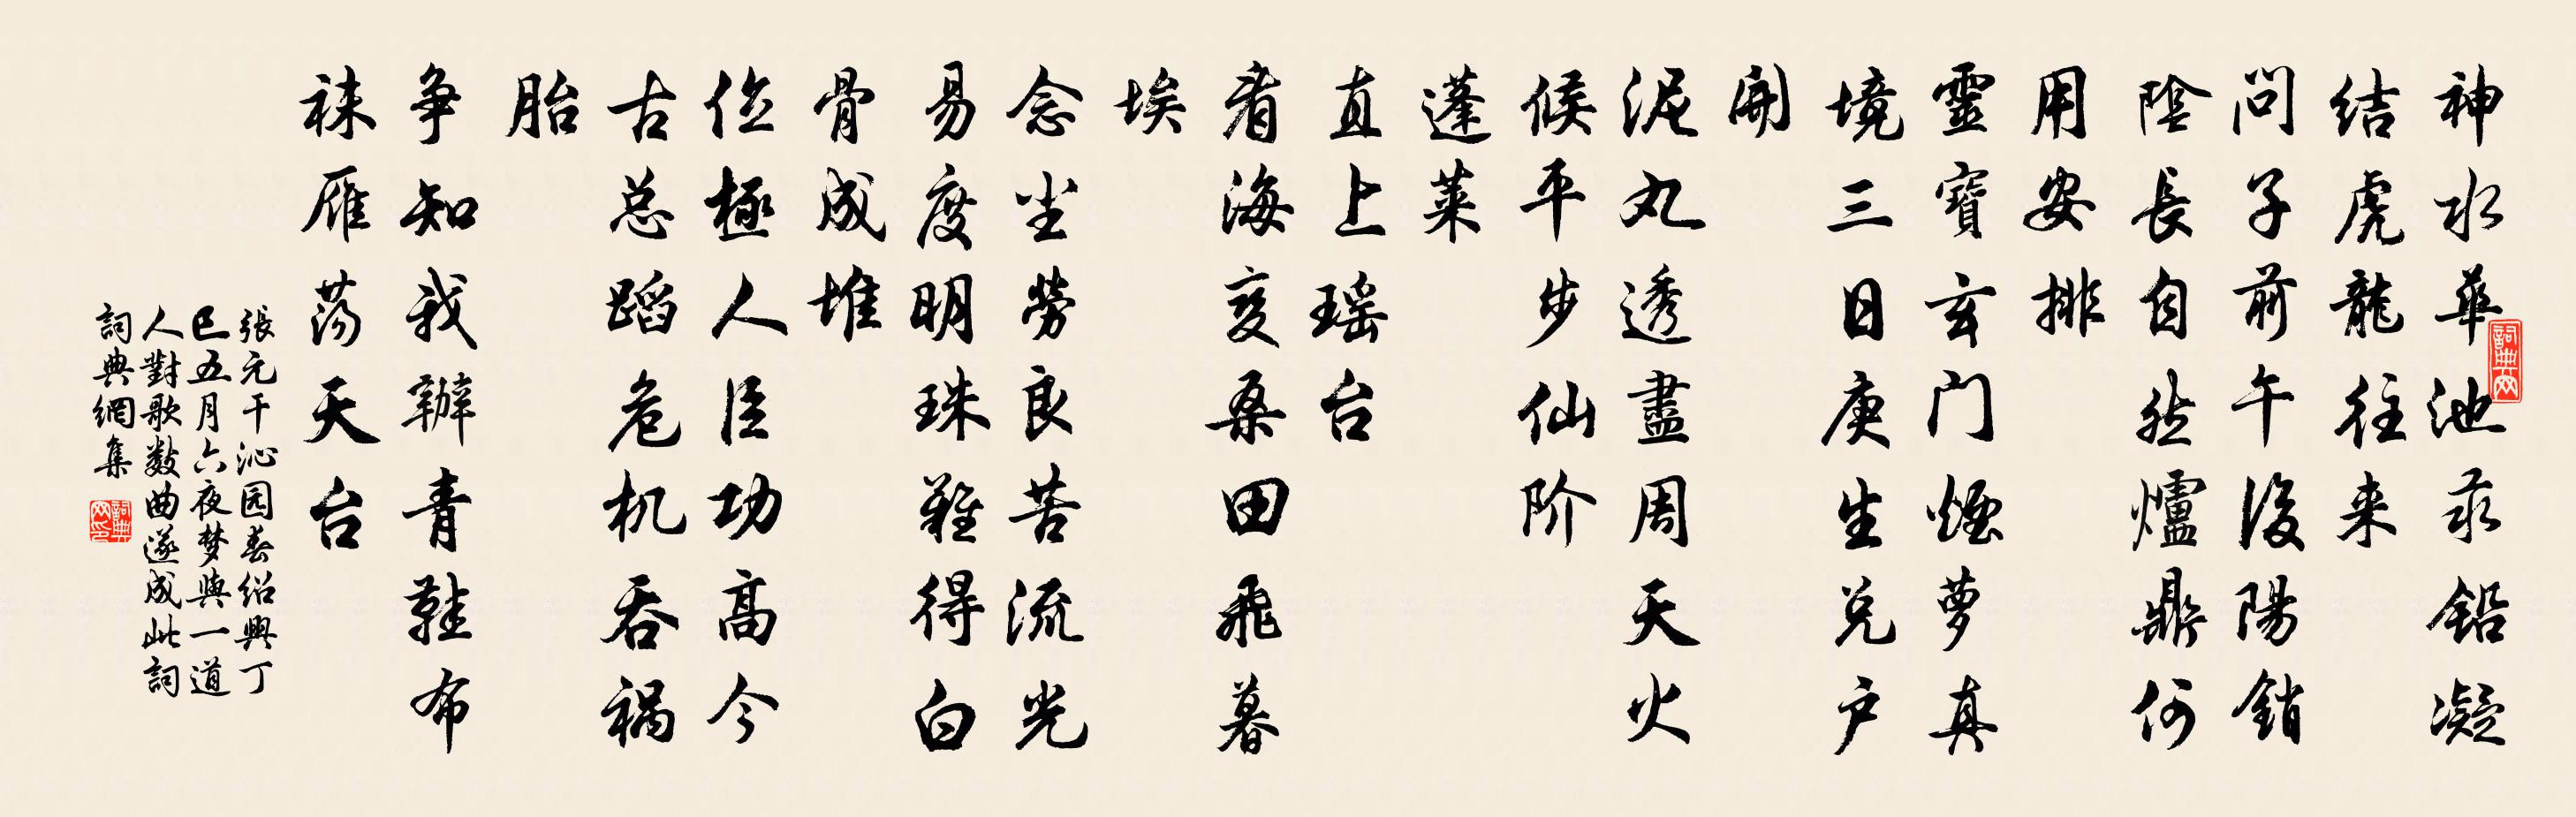 神水華池汞铅凝
结虎龍往来
问子前午後陽銷
陰長自然爐鼎何
用安排
靈寶玄门煙萝真
境三日庚生兑户
開
泥丸透盡周天火
候平步仙阶
蓬莱
直上瑶台
看海变桑田飛暮
埃
念尘劳良苦流光
易度明珠難得白
骨成堆
位極人臣功高今
古总蹈危机吞祸
胎
争知我辦青鞋布
袜雁荡天台
張元干沁园春绍興丁
巳五月六夜梦與一道
人對歌数曲遂成此詞
詞典網集
詞典网
詞典网印